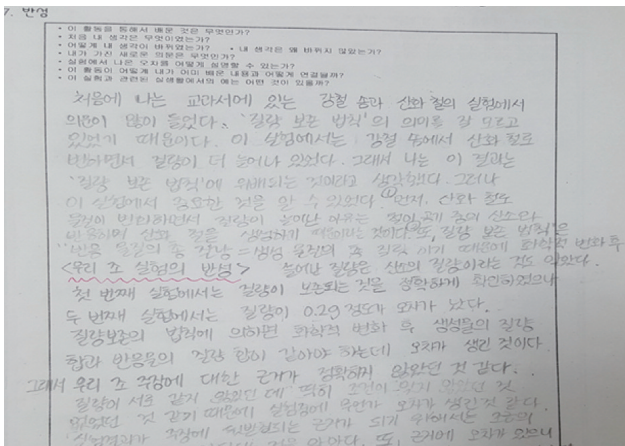 7. 반성
• 이 활동을 통해서 배운 것은 무엇인가?
• 처음 내 생각은 무엇이었는가?
• 어떻게 내 생각이 바뀌었는가? • 내 생각은 왜 바뀌지 않았는가?
• 내가 가진 새로운 의문은 무엇인가?
• 실험에서 나온 오차를 어떻게 설명할 수 있는가?
• 이 활동이 어떻게 내가 이미 배운 내용과 어떻게 연결될까?
• 이 실험과 관련된 실생활에서의 예는 어떤 것이 있을까?
처음에 나는 교과서에 있는 강철 솜과 산화 철의 실험에서
의문이 많이 들었다. '질량 보존 법칙'의 의미를 잘 모르고
있었기 때문이다. 이 실험에서는 강철 솜에서 산화 철로
변하면서 질량이 더 늘어나 있었다. 그래서 나는 이 결과는
'질량 보존 법칙'에 위배되는 것이라고 생각했다. 그러나
이 실험에서 중요한 것을 알 수 있었다. ①먼저, 산화 철도
물질이 변화하면서 질량이 늘어난 이유는 공기 중의 산소와
산화 철을 생성하기 때문이라는 것이다. 또, 질량 보존 법칙은
"반응 물질의 총 질량 = 생성 물질의 총 질량 이기 때문에 화학적 변화 후
<우리 조 실험의 반성> 늘어난 질량은 산소의 질량이라는 것도 알았다.
첫 번째 실험에서는 질량이 보존되는 것을 정확하게 확인하였으나
두 번째 실험에서는 질량이 0.2g 정도가 오차가 났다.
질량보존의 법칙에 의하면 화학적 변화 후 생성물의 질량
합과 반응물의 질량 합이 같아야 하는데 오차가 생긴 것이다.
그래서 우리 조 주장에 대한 근거가 정확하지 않았던 것 같다.
질량이 서로 같지 않았던 데 조건이 맞지 않았던 것
것 같기 때문에 실험중에 오차가 생긴 것 같다.
실험결과가 주장에 근거가 되기 위해서는
것을 알았다. 또, 근거에 오차가 있으니